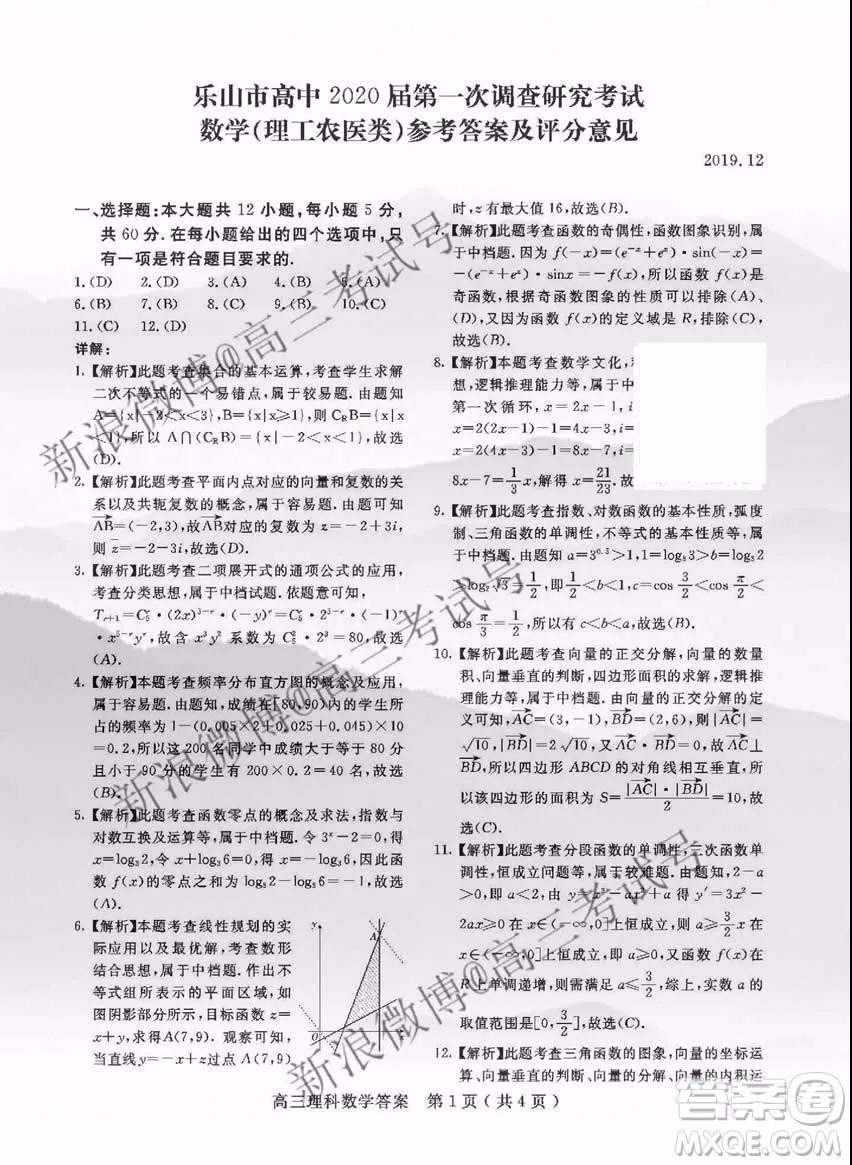 乐山市高中 2020 届第一次调查研究考试
数学(理工农医类)参考答案及评分意见
2019.12
一、选择题:本大题共 12 小题,每小题 5 分,
共 60 分.在每小题给出的四个选项中,只
有一项是符合题目要求的.
1.(D) 2.(D) 3.(A) 4.(B) 5.(A)
6.(B) 7.(B) 8.(C) 9.(B) 10.(C)
11.(C) 12.(D)
详解:
1.【解析】此题考查集合的基本运算,考查学生求解
二次不等式的一个易错点,属于较易题.由题知
A={x|-2<x<3},B={x|x≥1},则 C_RB={x|x
<1},所以 A∩(C_RB)={x|-2<x<1},故选
(D).
2.【解析】此题考查平面内点对应的向量和复数的关
系以及共轭复数的概念,属于容易题.由题可知
AB→=(-2,3),故 AB→ 对应的复数为 z=-2+3i,
则 z̄=-2-3i,故选(D).
3.【解析】此题考查二项展开式的通项公式的应用,
考查分类思想,属于中档试题.依题意,
故含 x³y² 系数为
=80,故选
(A).
4.【解析】本题考查频率分布直方图的概念及应用,
属于容易题.由题知,成绩在[80,90)内的学生所
占的频率为 1-(0.005×2+0.025+0.045)×10
=0.2,所以这 200 名同学中成绩大于等于 80 分
且小于 90 分的学生有 200×0.2=40 名,故选
(B).
5.【解析】此题考查函数零点的概念及求法,指数与
对数互换及运算等,属于中档题.令 3ˣ-2=0,得
x=log₃2,令 x+log₃6=0,得 x=-log₃6,因此
函数 f(x)的零点之和为 log₃2-log₃6=-1,故选
(A).
6.【解析】本题考查线性规划的实
际应用以及最优解,考查数形
结合思想,属于中档题.作出不
等式组所表示的平面区域,如
图阴影部分所示,目标函数 z=
x+y,求得 A(7,9). 观察可知,
当直线 y=-x+z过点 A(7,9)
y
A
O
x
时,z 有最大值 16,故选(B).
7.【解析】此题考查函数的奇偶性,函数图象识别,属
于中档题.因为 f(-x)=(e⁻ˣ+eˣ)·sin(-x)=
-(e⁻ˣ+eˣ)·sinx=-f(x),所以函数 f(x)是
奇函数,根据奇函数图象的性质可以排除(A)、
(D),又因为函数 f(x)的定义域是 R,排除(C),
故选(B).
8.【解析】本题考查数学文化,
想,逻辑推理能力等,属于中
第一次循环,x=2x-1,i=
x=2(2x-1)-1=4x-3,i=
x=2(4x-3)-1=8x-7,i=
8x-7=1/3 x,解得 x=21/23.
9.【解析】此题考查指数、对数函数的基本性质,弧度
制、三角函数的单调性,不等式的基本性质等,属
于中档题.由题知 a=3^0.5>1,1=log₃3>b=log₃2
>log₃√3=1/2,即 1/2<b<1,c=cos 3/2<cos
cos π/3=1/2,所以有 c<b<a,故选(B).
10.【解析】此题考查向量的正交分解,向量的数量
积、向量垂直的判断,四边形面积的求解,逻辑推
理能力等,属于中档题.由向量的正交分解的定
义可知,AC→=(3,-1),BD→=(2,6),则|AC→|=
√10,|BD→|=2√10,又AC→·BD→=0,故AC→⊥
BD→,所以四边形 ABCD 的对角线相互垂直,所
以该四边形的面积为 S=|AC→|·|BD→|/2=10,故
选(C).
11.【解析】此题考查分段函数的单调性,三次函数单
调性,恒成立问题等,属于较难题.由题知,2-a
>0,即 a<2,由
得 y′=3x²-
2ax≥0在 x∈(-∞,0]上恒成立,则 a≥3/2 x 在
x∈(-∞,0]上恒成立,即 a≥0,又函数 f(x)在
R 上单调递增,则
即 a≤3/2,综上,实数 a 的
取值范围是[0,3/2],故选(C).
12.【解析】此题考查三角函数的图象,向量的坐标运
算、三角函数的变换、向量垂直、向量的内积运
高三理科数学答案 第 1 页(共 4 页)
新浪微博@高三考试号
新浪微博@高三考试号
新浪微博@高三考试号
MXQE.COM